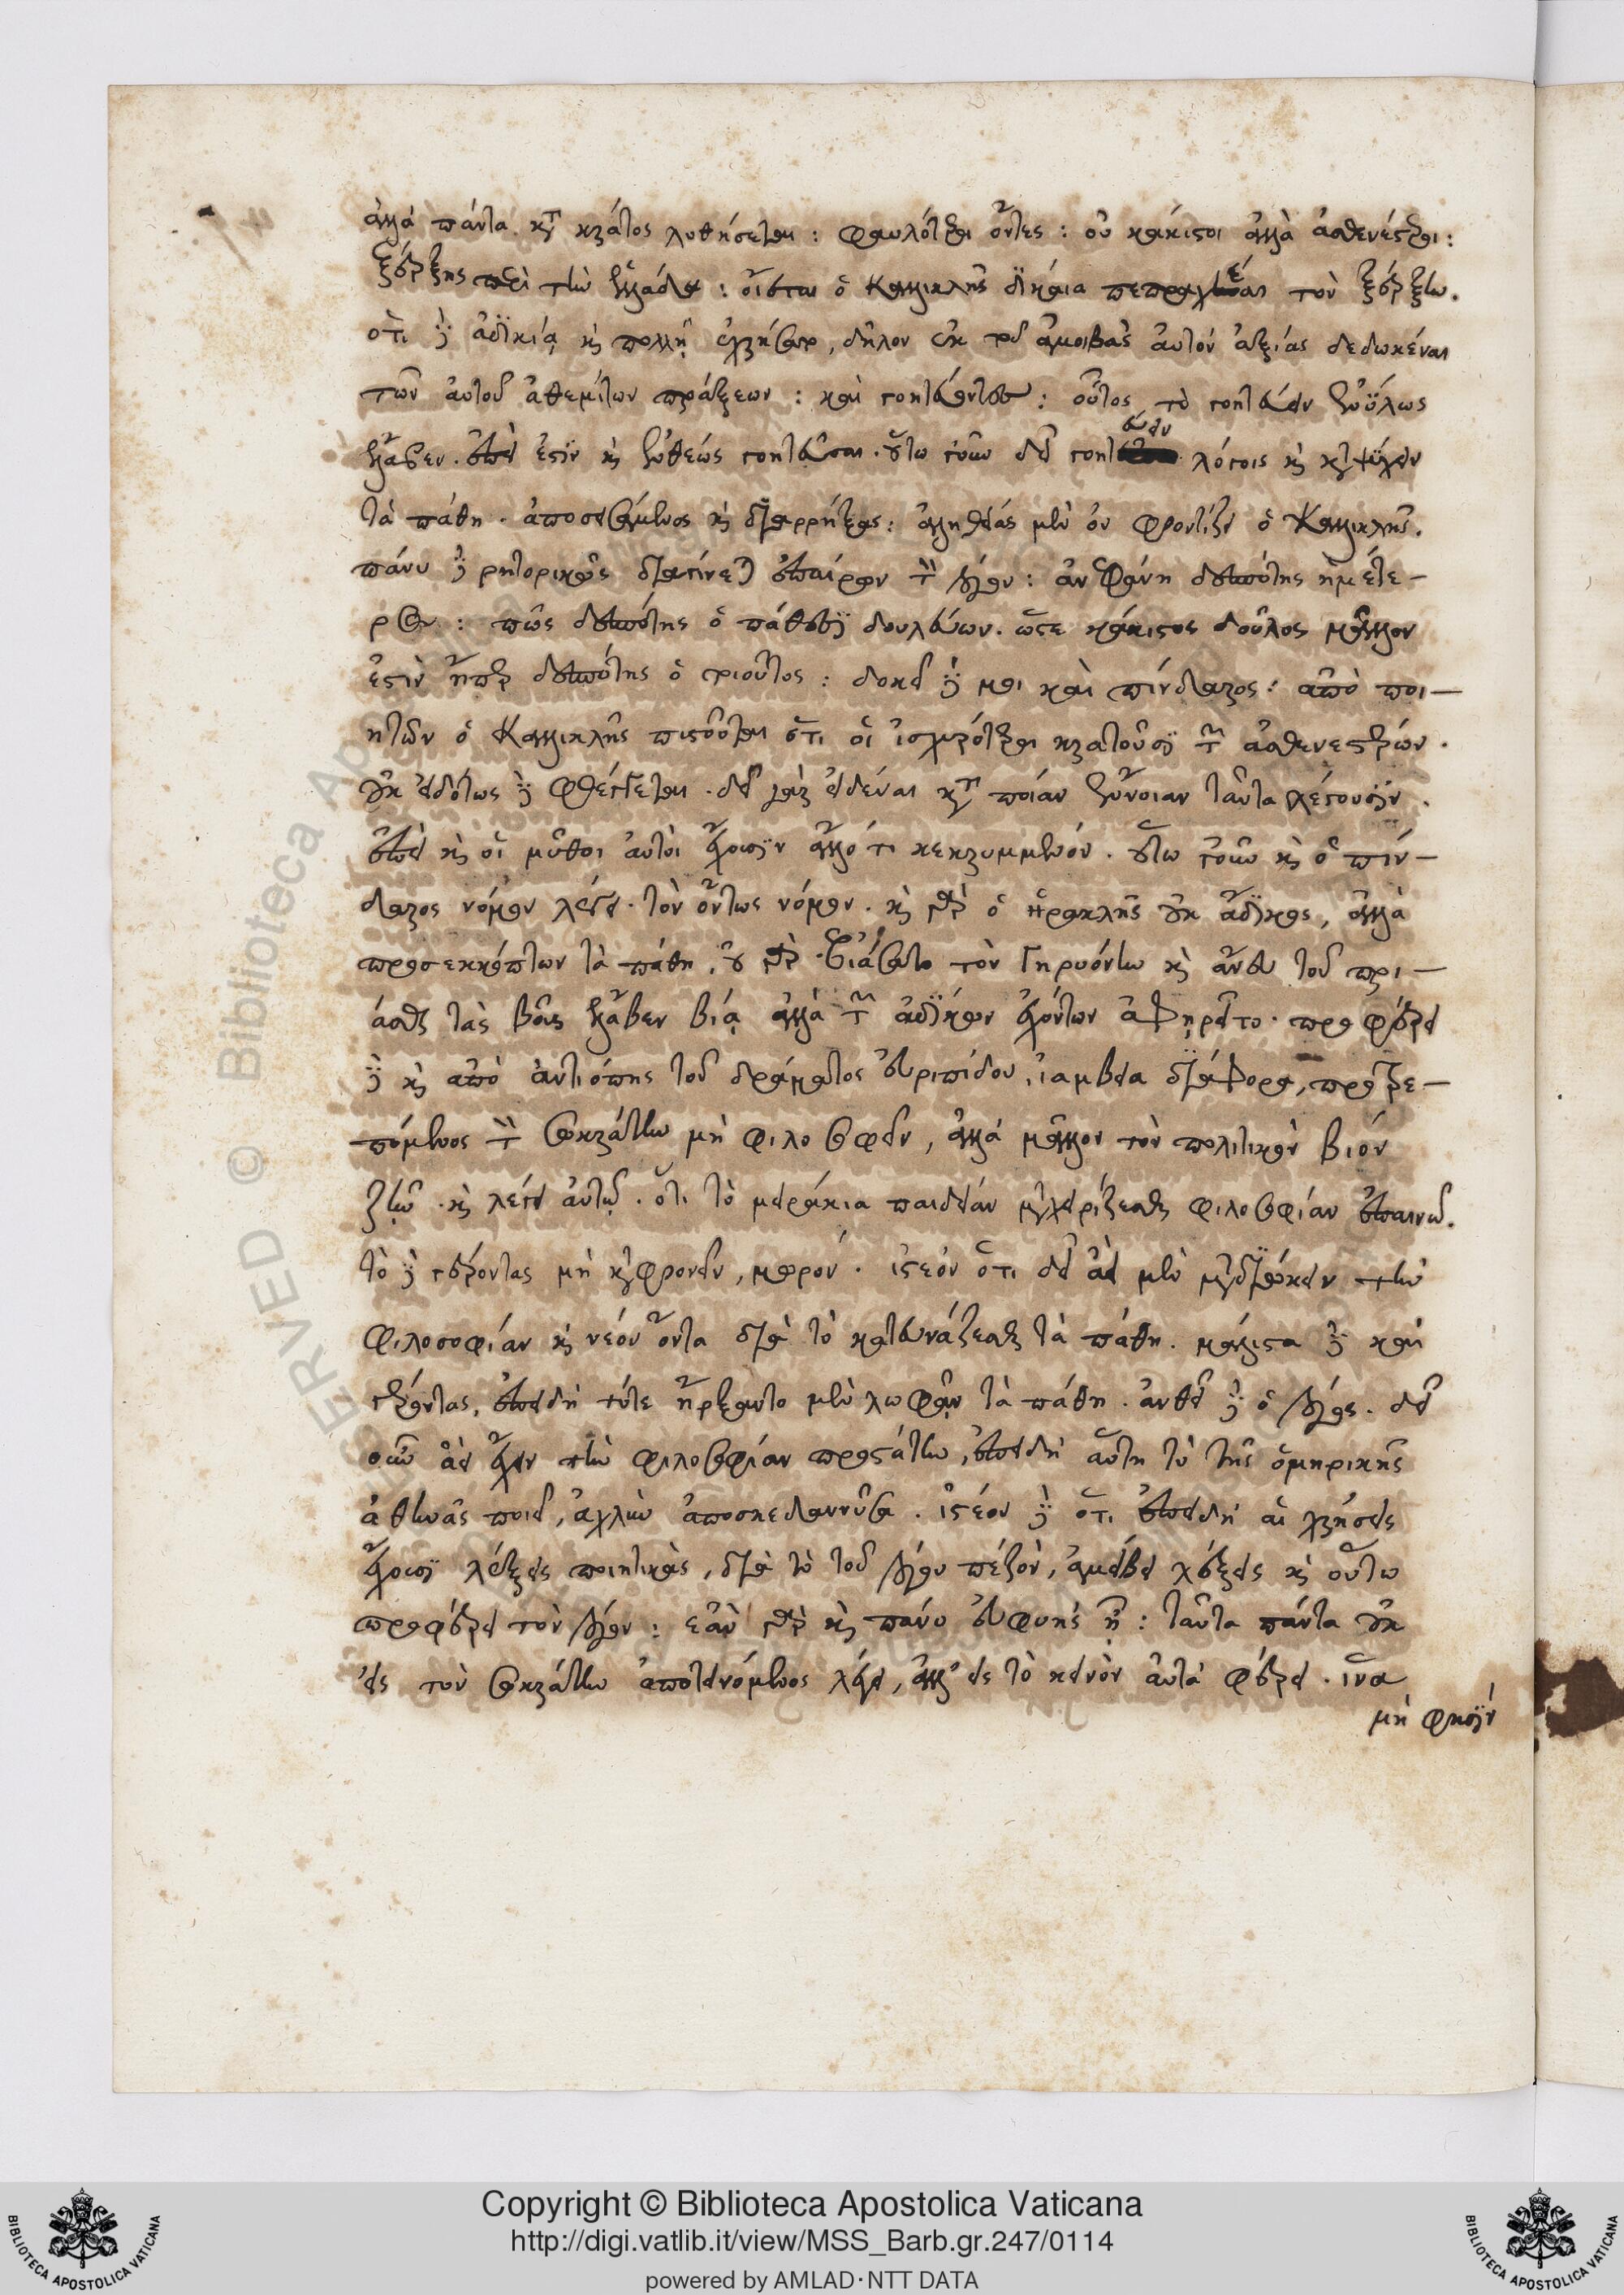 ἀλλὰ πάντα κατὰ κράτος λυθήσεται : φαυλότεροι ὄντες : οὐ κάκιστοι ἀλλὰ ἀσθενέστεροι :
ξέρξης ἐπὶ τὴν ἑλλάδα : οἴεται ὁ Καλλικλῆς δίκαια τὸν ξέρξην .
ὅτι δὲ ἀδικίᾳ καὶ πολλῇ ἐχρήσατο , δῆλον ἐκ τοῦ ἀμοιβὰς αὐτὸν ἀξίας δεδωκέναι
τῶν αὐτοῦ ἀθεμίτων πράξεων : καὶ γοητεύοντες : οὗτος τὸ γοητεύειν εὐήλως
ἔλαβεν . ἐπεὶ ἐστὶν καὶ εὐθέως γοητεῦσαι . οὕτω γοῦν δεῖ γοητεύειν λόγοις καὶ
τὰ πάθη . ἀποσεισάμενος καὶ διαρρήξας : ἀληθείας μὲν οὐ φροντίζει ὁ Καλλικλῆς .
πάνυ δὲ ῥητορικῶς διατείνεται ἐπαίρων τὸν λόγον : ἀνεφάνη δεσπότης ἡμέτε-
ρος : πῶς δεσπότης ὁ πάθεσι δουλεύων . ὥστε κάκιστος δοῦλος μᾶλλον
ἐστὶν ἤπερ δεσπότης ὁ τοιοῦτος : δοκεῖ δέ μοι καὶ πίνδαρος : ἀπὸ ποι-
ητῶν ὁ Καλλικλῆς πιστοῦται ὅτι οἱ ἰσχυρότεροι κρατοῦσι τῶν ἀσθενεστέρων .
οὐκ εἰδότως δὲ φθέγγεται . δεῖ γὰρ εἰδέναι κατὰ ποίαν ἔννοιαν ταῦτα λέγουσιν .
ἐπεὶ καὶ οἱ μῦθοι αὐτοὶ ἔχουσιν ἄλλό τι κεκρυμμένον . οὕτω γοῦν καὶ ὁ πίν-
δαρος νόμον λέγει τὸν ὄντως νόμον . καὶ γὰρ ὁ ἡρακλῆς οὐκ ἄδικος , ἀλλὰ
προσεκκόπτων τὰ πάθη . οὐ γὰρ βιάσατο τὸν Γηρυόνην καὶ ἄνευ τοῦ πρι-
άσθαι τὰς βοῦς ἔλαβεν βίᾳ ἀλλὰ τῶν ἀδίκων ἐχόντων ἀφῃρεῖτο . προφέρει
δὲ καὶ ἀπὸ ἀντιόπης τοῦ δράματος εὐριπίδου , ἰαμβεῖα διάφορα , προτρε-
πόμενος τὸν σωκράτην μὴ φιλοσοφεῖν , ἀλλὰ μᾶλλον τὸν πολιτικὸν βίον
ζῆν . καὶ λέγει αὐτῷ . ὅτι τὸ μειράκια παιδείαν μεταχειρίζεσθαι φιλοσοφίαν ἐπαινῶ .
τὸ δὲ γέροντας μὴ καταφρονεῖν , μωρόν . ἰστέον ὅτι δεῖ ἀεὶ μὲν μεταδιώκειν τὴν
φιλοσοφίαν καὶ νέον ὄντα διὰ τὸ κατευνάζεσθαι τὰ πάθη . μάλιστα δὲ καὶ
γέροντας , ἐπειδὴ τότε ἤρξαντο μὲν λωφᾶν τὰ πάθη . ἀνθεῖ δὲ ὁ λόγος . δεῖ
οὖν ἀεὶ ἔχειν τὴν φιλοσοφίαν προστάτην , ἐπειδὴ αὕτη τὸ τῆς ὁμηρικῆς
ἀθηνᾶς ποιεῖ , ἀχλὺν ἀποσκεδαννῦσα . ἰστέον δὲ ὅτι ἐπειδὴ αἱ χρήσεις
ἔχουσι λέξεις ποιητικάς , διὰ τὸ τοῦ λόγου πεζὸν , ἀμείβει λέξεις καὶ οὕτω
προφέρει τὸν λόγον : ἐὰν γὰρ καὶ πάνυ εὐφυὴς ᾖ : ταῦτα πάντα οὐκ
εἰς τὸν σωκράτην ἀποτεινόμενος λέγει , ἀλλ' εἰς τὸ κοινὸν αὐτὰ φέρει . ἵνα
μὴ φησὶν
RESERVED © Biblioteca Apostolica Vaticana
Copyright © Biblioteca Apostolica Vaticana
http://digi.vatlib.it/view/MSS_Barb.gr.247/0114
powered by AMLAD·NTT DATA
BIBLIOTECA APOSTOLICA VATICANA
BIBLIOTECA APOSTOLICA VATICANA